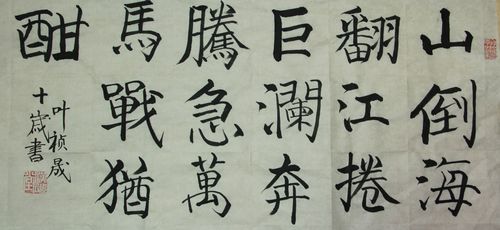 山倒海
翻江捲
巨瀾奔
騰急萬
馬戰猶
酣
叶祯晟
十歲書